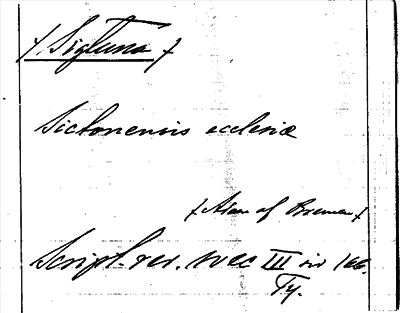 / Sigtuna /
Sictonensis ecclesiæ
/ Adam af Bremen /
Script. rer. svec III sid 166.
Ty.